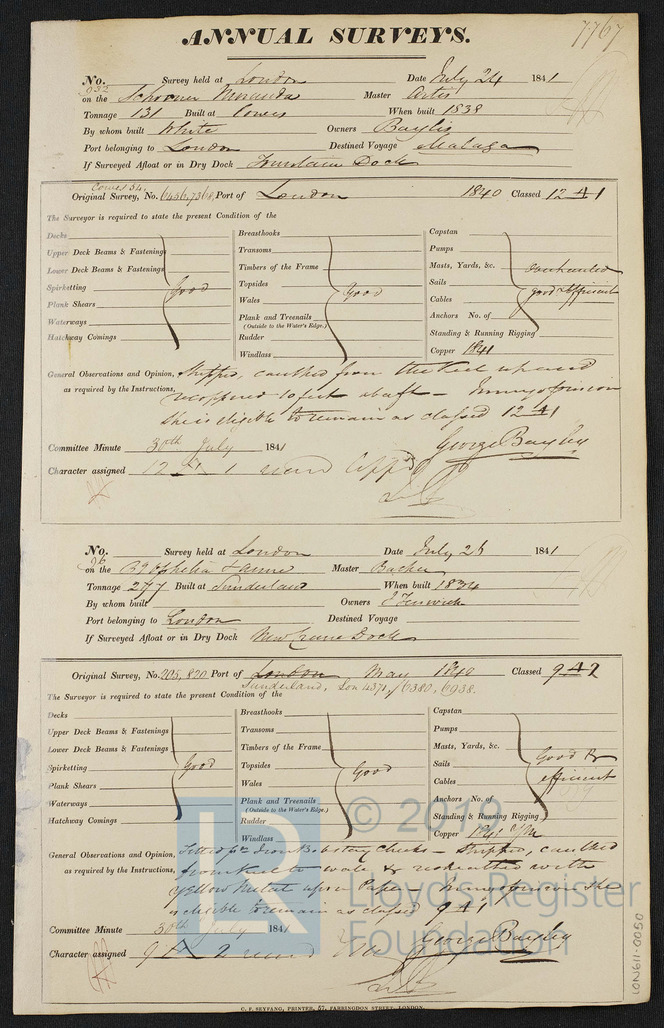 7767
ANNUAL SURVEYS.
No. 932 Survey held at London Date July 24 1841
on the Schooner Miranda Master Artis
Tonnage 131 Built at Cowes When built 1838
By whom built White Owners Baylis
Port belonging to London Destined Voyage Malaga
If Surveyed Afloat or in Dry Dock Fountain Dock
Cowes 54.
Original Survey, No. Port of London 1840 Classed 12 A 1
The Surveyor is required to state the present Condition of the
Decks Breasthooks Capstan
Upper Deck Beams & Fastenings Transoms Pumps
Lower Deck Beams & Fastenings Timbers of the Frame Masts, Yards, &c. overhauled
Spirketting Good Topsides Good Sails good & efficient
Plank Shears Wales Cables
Waterways Plank and Treenails Anchors No. of
(Outside to the Water's Edge.)
Hatchway Comings Rudder Standing & Running Rigging
Windlass Copper 1841
General Observations and Opinion, Stripped, caulked from the Keel upward
as required by the Instructions, recoppered 10 feet abaft - In my opinion
She is eligible to remain as classed 12 A 1
Committee Minute 30th July 1841 George Bayley
Character assigned 12 A 1
No. 96 Survey held at London Date July 26 1841
on the Bg Ophelia & Anne Master Barker
Tonnage 277 Built at Sunderland When built 1834
By whom built Owners J Fenwick
Port belonging to London Destined Voyage
If Surveyed Afloat or in Dry Dock New Crane Dock
Original Survey, No. 205, 820 Port of London May 1840 Classed 9 A 2
Sunderland, Lon 4371, 6380, 6938.
The Surveyor is required to state the present Condition of the
Decks Breasthooks Capstan
Upper Deck Beams & Fastenings Transoms Pumps
Lower Deck Beams & Fastenings Timbers of the Frame Masts, Yards, &c. Good &
Spirketting Good Topsides Good Sails efficient
Plank Shears Wales Cables
Waterways Plank and Treenails Anchors No. of
(Outside to the Water's Edge.)
Hatchway Comings Rudder Standing & Running Rigging
Windlass Copper 1841
General Observations and Opinion, Stripped, caulked
as required by the Instructions, from Keel to wale & resheathed with
Yellow Metal upon Paper - In my opinion She
is eligible to remain as classed 9 A 1
Committee Minute 30th July 1841 George Bayley
Character assigned 9 A 2
C. F. SEYFANG, PRINTER, 57, FARRINGDON STREET, LONDON.
LR
© 2019
Lloyd's Register
Foundation
LON611-0050